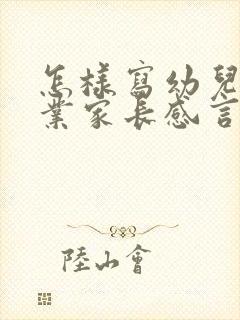 怎樣寫幼兒
業家長感言
陸山會